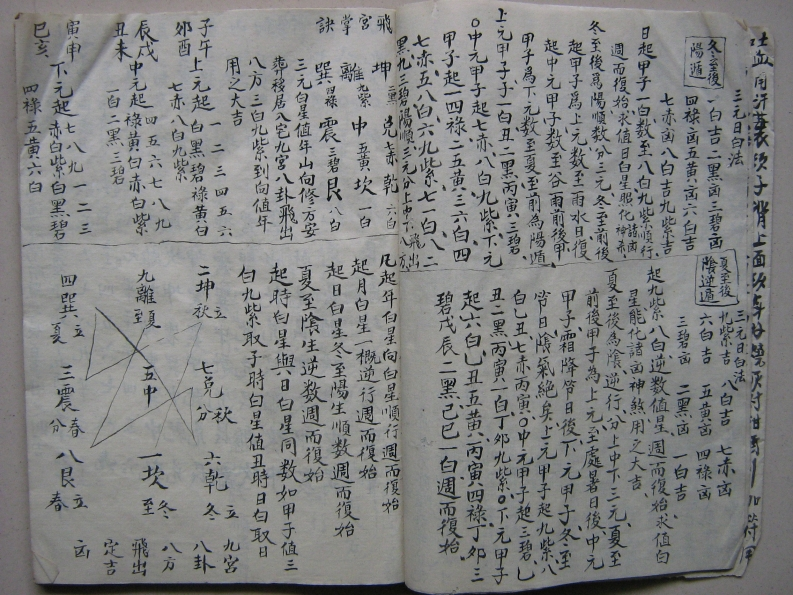 冬至後
陽遁
三元日白法
一白吉二黑凶三碧凶
四祿凶五黃凶六白吉
七赤凶八白吉九紫吉
日起甲子一白数至八白九紫順行
週而復始求值日白星照化諸凶神煞
冬至後為陽順数分三元冬至前後
起甲子為上元数至雨水日後
起中元甲子数至谷雨前後甲
子為下元数至夏至前為陽遁
上元甲子一白丑二黑丙寅三碧
〇中元甲子起七赤八白九紫下元
甲子起一四祿二五黃三六白四
七赤五八白六九紫七一白八二
黑九三碧陽順三元分上中下飛出八方
夏至後
陰逆遁
三元日白法
九紫吉 八白吉 七赤凶
六白吉 五黃凶 四祿凶
三碧凶 二黑凶 一白吉
起九紫八白逆数值星週而復始求值白
星能化諸凶神煞用之大吉
夏至後為陰逆行分上中下三元夏至
前後甲子為上元至處暑日後中元
甲子霜降節日後下元甲子冬至
節日陰氣絕矣上元甲子起九紫八
白乙丑七赤丙寅〇中元甲子起三碧乙
丑二黑丙寅一白丁卯九紫〇下元甲子
起六白乙丑五黃丙寅四祿丁卯三
碧戊辰二黑己巳一白週而復始
飛宮掌訣
坤二黑 兌七赤 乾六白
離九紫 中五黃 坎一白
巽四祿 震三碧 艮八白
三元白星值年山向修方安
葬移居入宅九宮八卦飛出
八方三白九紫到向值年
用之大吉
子午卯酉 上元起一二三四五六白黑碧祿黃白
七赤八白九紫
辰戌丑未 中元起四五六七八九祿黃白赤白紫
一白二黑三碧
寅申巳亥 下元起七八九一二三赤白紫白黑碧
四祿五黃六白
凡起年白星向白星順行週而復始
起月白星一概逆行週而復始
起日白星冬至陽生順数週而復始
夏至陰生逆数週而復始
起時白星與日白星同数如甲子值三
白九紫取子時白星值丑時日白取日
二坤立秋 七兌秋分 六乾立冬
九離夏至 五中 一坎冬至
四巽立夏 三震春分 八艮立春
九宮八卦八方飛出定吉凶